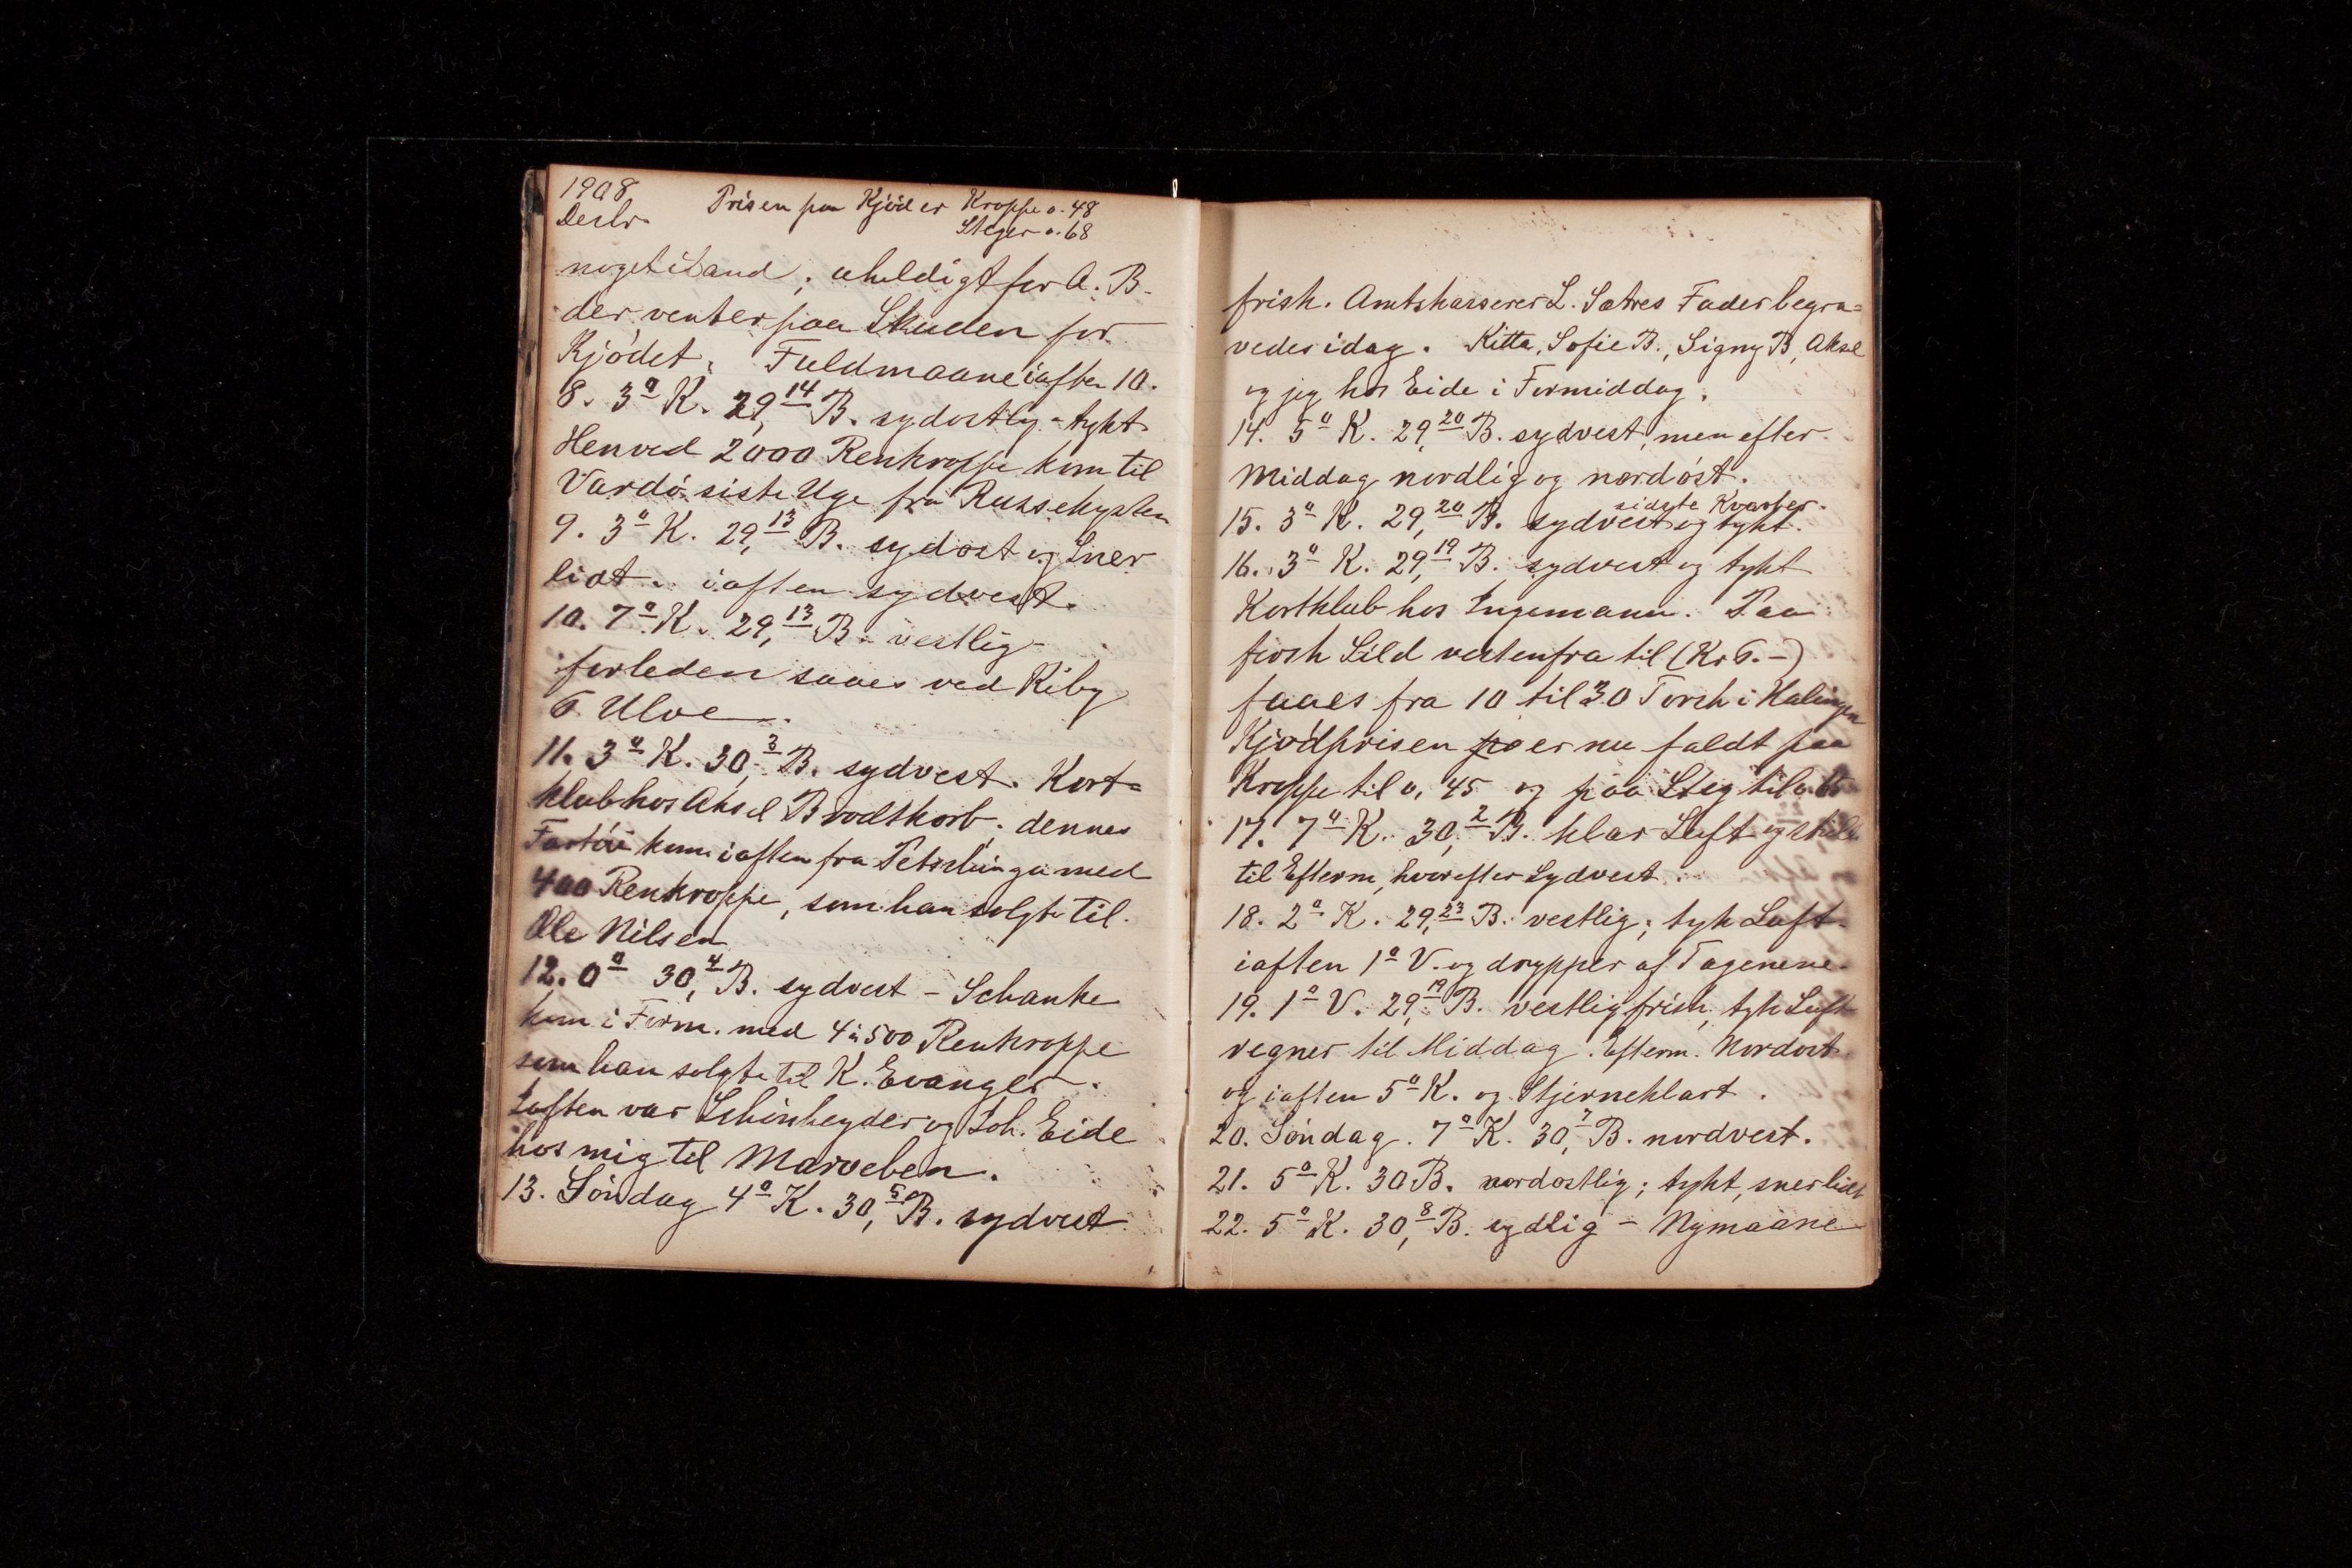 1908 Prisen paa Kjöd er Kroppe 0.48
Decbr. Steger 0.68
noget iLand; uheldigt for A. B.
der venter paa Skuden for
Kjödet. Fuldmaane iaften 10.
8. 3° K. 29,14 B. sydostlig - tykt
Henved 2000 Renkroppe kom til
Vardö siste Uge fra Russekysten
9. 3° K. 29,13 B. sydost og Sner
lidt - iaften sydvest.
10. 7° K. 29,13 B. vestlig -
forleden saaes ved Kiby
6 Ulve.
11. 3° K. 30,3 B. sydvest. Kort=
klub hos Aksel Brodtkorb; dennes
Fartöi kom iaften fra Petschinga med
400 Renkroppe, som han solgte til
Ole Nilsen
12. 0° 30,4 B. sydvest - Schanke
kom i Form. med 4 à 500 Renkroppe
som han solgte til K. Evanger.
Iaften var Schönheyder og Joh. Eide
hos mig til Marveben.
13. Söndag 4° K. 30,5 B. sydvest
frisk. Amtskasserer L. Sætres Fader begra=
vedes idag. Kitta, Sofie B., Signy B, Aksel
og jeg hos Eide i Formiddag.
14. 5° K. 29,20 B. sydvest, men efter
Middag nordlig og nordöst.
sidste Kvarter.
15. 3° K. 29,20 B. sydvest og tykt.
16. 3° K. 29,19 B. sydvest og tykt
Kortklub hos Ingemann. Paa
fersk Sild vestenfra til (Kr 6.-)
faaes fra 10 til 30 Torsk i Halingen
Kjödprisen er nu faldt paa
Kroppe til 0,45 og paa Steg til
17. 7° K. 30,2 B. klar Luft og stille
til Efterm, hvorefter Sydvest.
18. 2° K. 29,23 B. vestlig; tyk Luft
iaften 1° V. og drypper af Tagenene.
19. 1° V. 29,19 B. vestlig frisk, tyk Luft
regner til Middag. Efterm. Nordost
og iaften 5° K. og Stjerneklart.
20. Söndag. 7° K. 30,7 B. nordvest.
21. 5° K. 30 B. nordostlig; tykt, sner lidt
22. 5° K. 30,8 B. sydlig - Nymaane